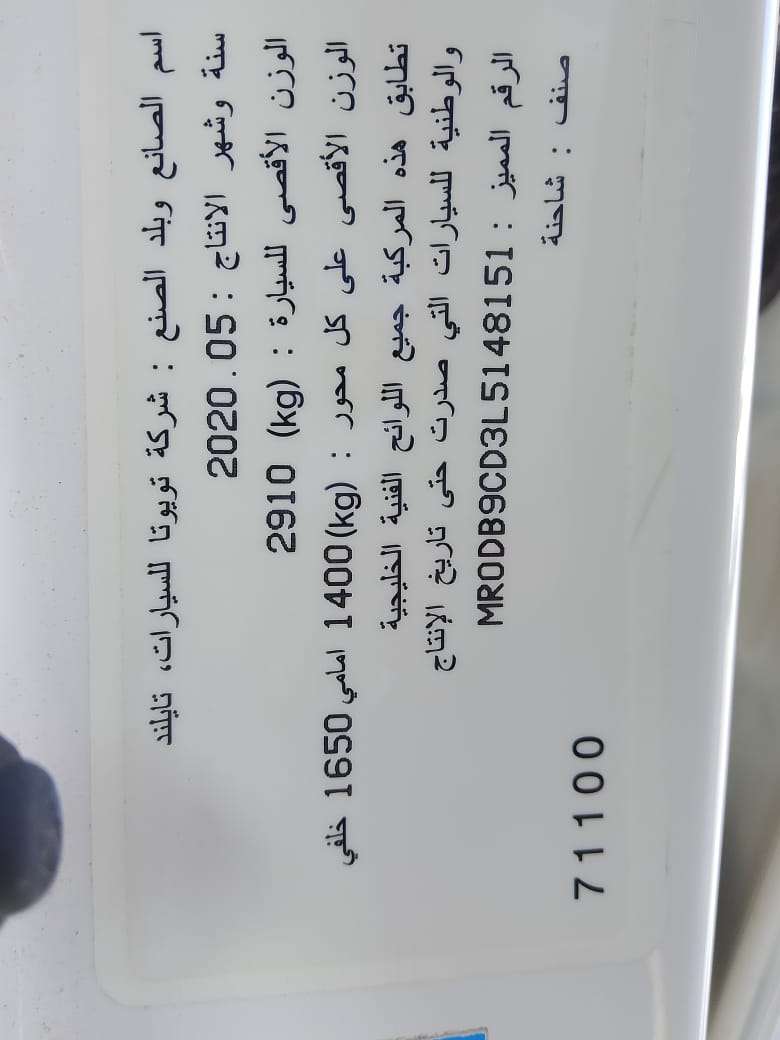 اسم الصانع وبلد الصنع : شركة تويوتا للسيارات، تايلند
سنة وشهر الانتاج : 2020.05
الوزن الأقصى للسيارة : (kg) 2910
الوزن الأقصى على كل محور : (kg) 1400 امامي 1650 خلفي
تطابق هذه المركبة جميع اللوائح الفنية الخليجية
والوطنية للسيارات التي صدرت حتى تاريخ الإنتاج
الرقم المميز : MR0DB9CD3L5148151
صنف : شاحنة
71100